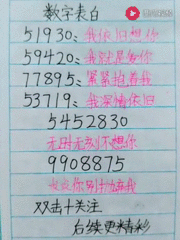 数字表白
51930:我依旧想你
59420:我就是爱你
77895:紧紧抱着我
53719:我深情依旧
5452830
无时无刻不想你
9908875
求求你别抛弃我
双击+关注
后续更精彩